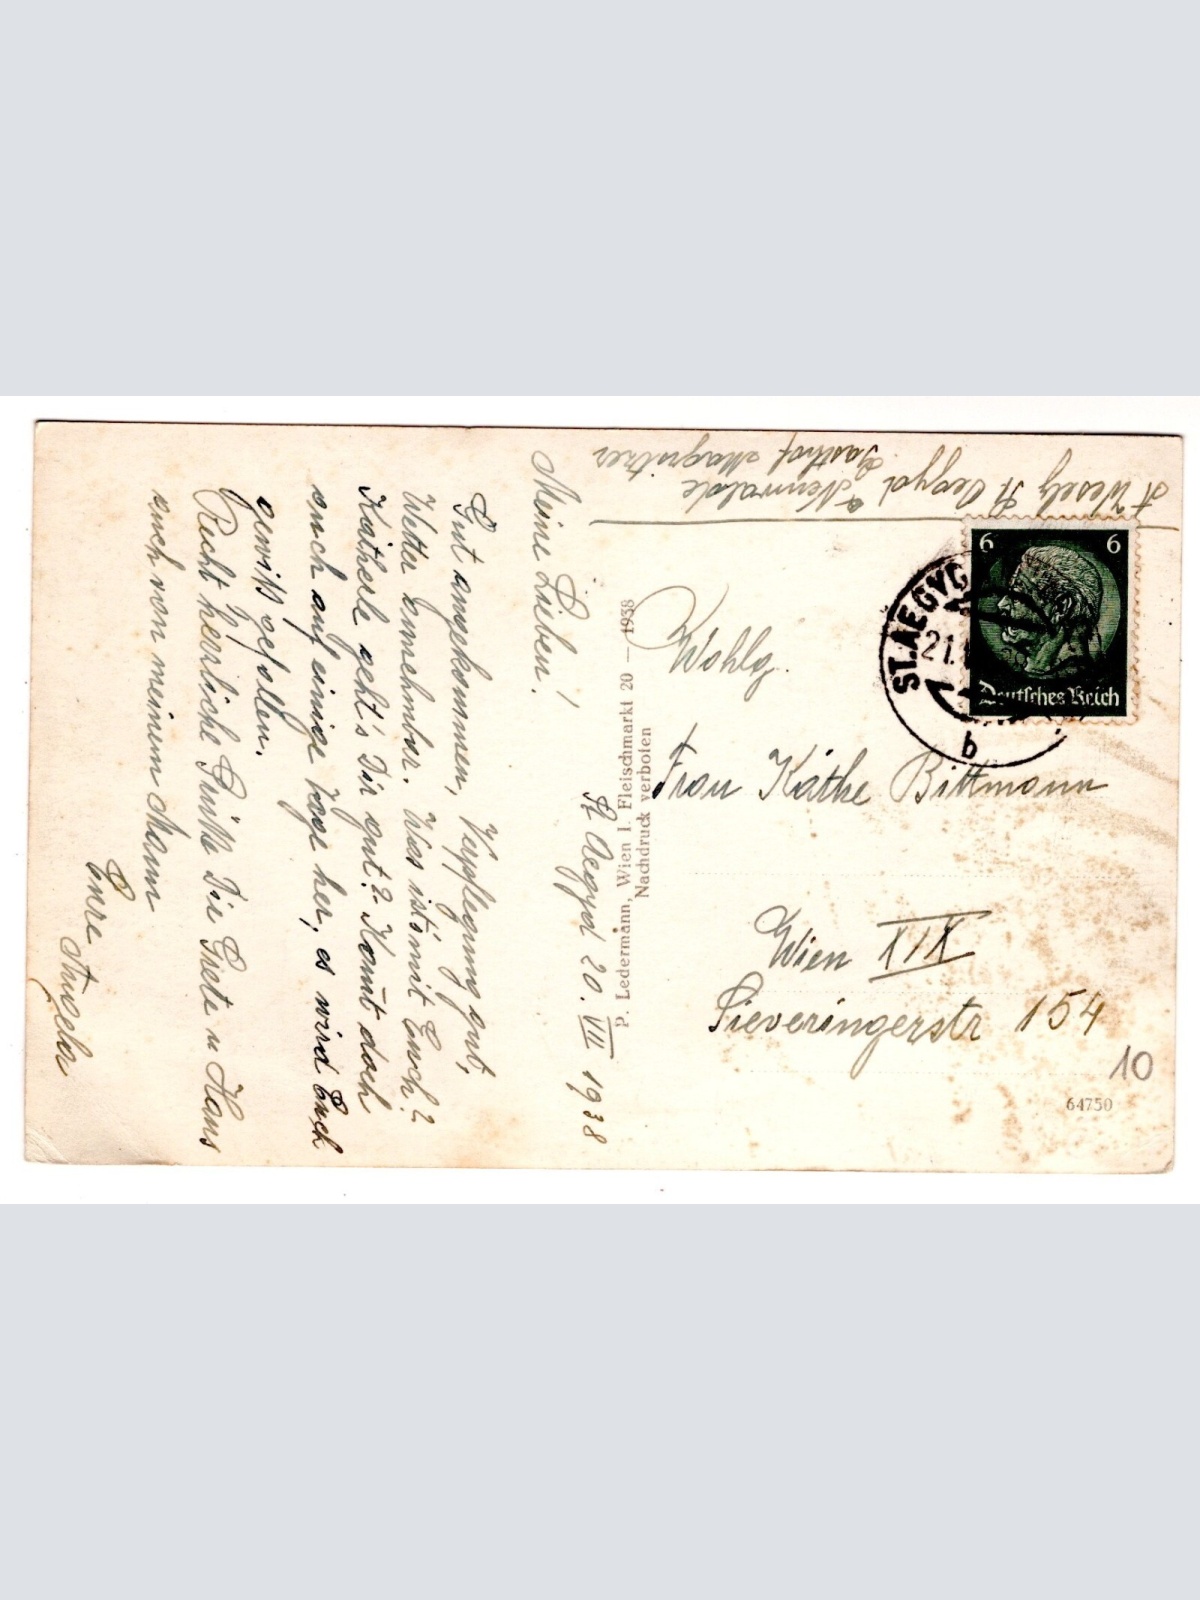 St Aegyd 20. VIII 1938
Meine Lieben!
Gut angekommen, Verpflegung gut,
Wetter annehmbar. Was ist mit Euch?
Katherle geht's Dir gut? Kom̄t doch
auch auf einige Tage her, es wird Euch
gewiß gefallen.
Recht herrliche Grüße Dir Grete u Hans
auch von meinem Mann
Eure
P. Ledermann, Wien I. Fleischmarkt 20 — 1938
Nachdruck verboten
Wesely St Aegyd a Neuwalde
Gasthof
6 6
Deutsches Reich
ST. AEGYD
21.
b
Wohlg.
Frau Käthe Bittmann
Wien XIX
Sieveringerstr 154
10
64750